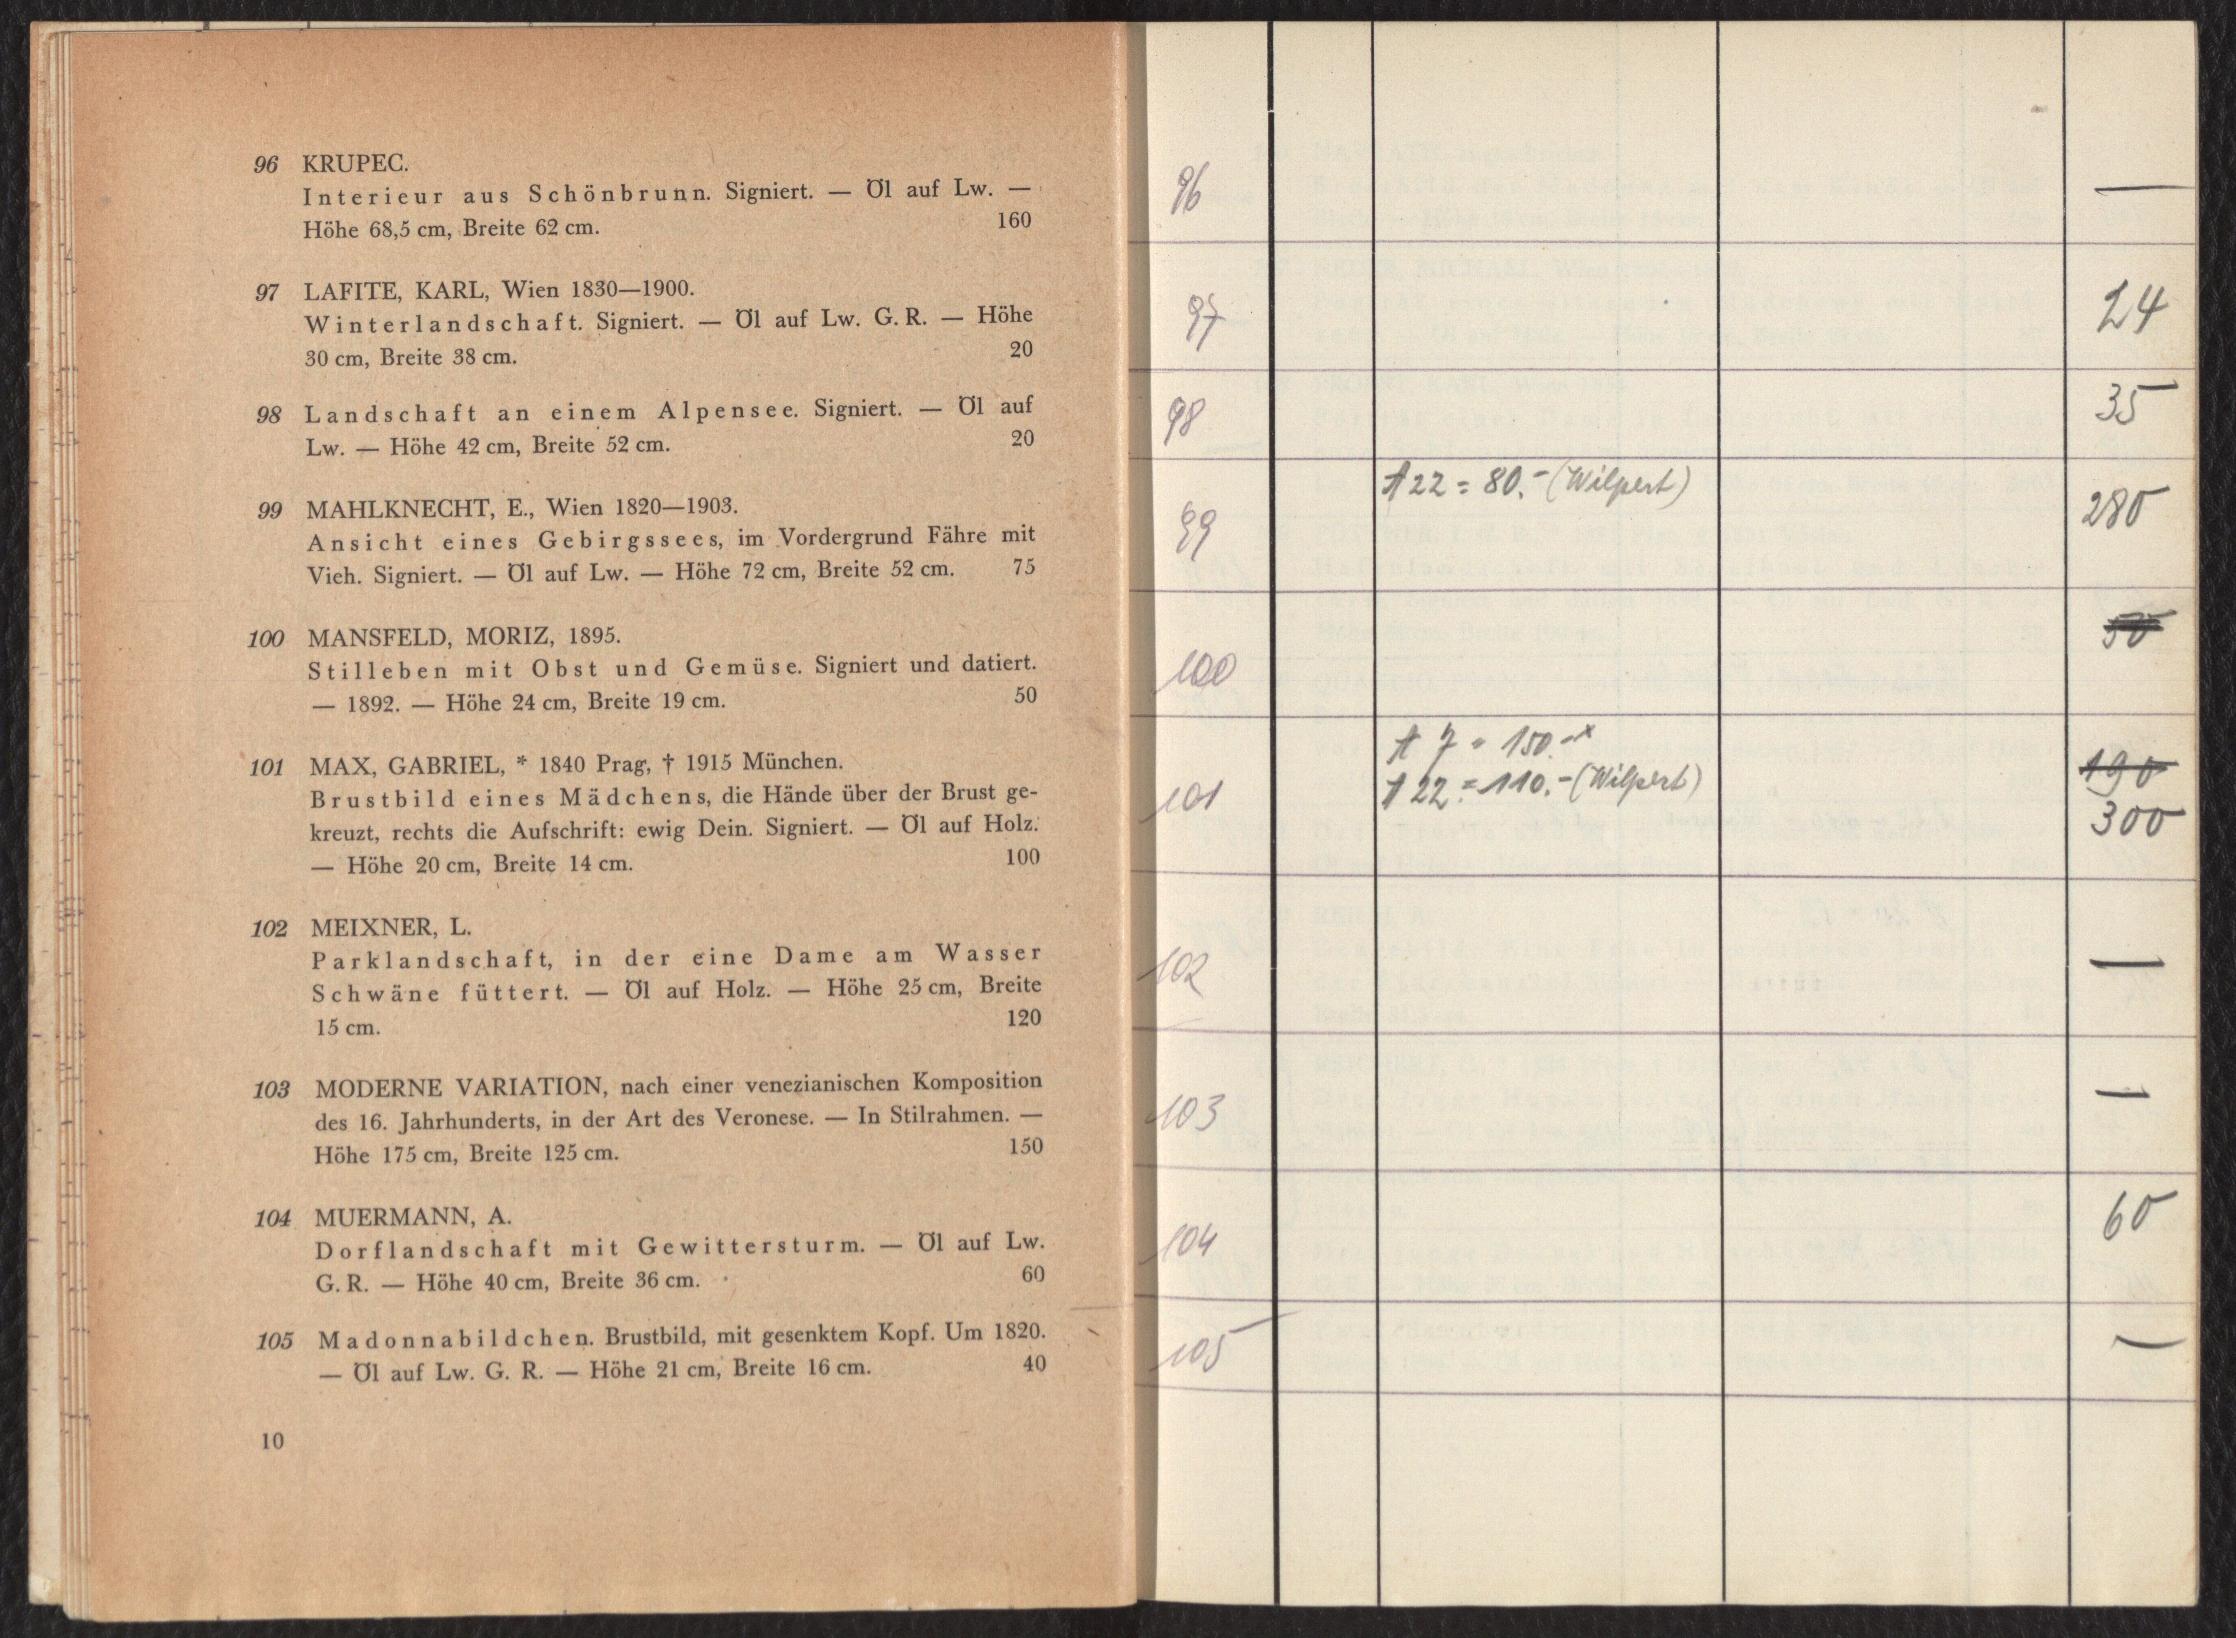 96 KRUPEC.
Interieur aus Schönbrunn. Signiert. — Öl auf Lw. —
Höhe 68,5 cm, Breite 62 cm. 160
97 LAFITE, KARL, Wien 1830—1900.
Winterlandschaft. Signiert. — Öl auf Lw. G. R. — Höhe
30 cm, Breite 38 cm. 20
98 Landschaft an einem Alpensee. Signiert. — Öl auf
Lw. — Höhe 42 cm, Breite 52 cm. 20
99 MAHLKNECHT, E., Wien 1820—1903.
Ansicht eines Gebirgssees, im Vordergrund Fähre mit
Vieh. Signiert. — Öl auf Lw. — Höhe 72 cm, Breite 52 cm. 75
100 MANSFELD, MORIZ, 1895.
Stilleben mit Obst und Gemüse. Signiert und datiert.
— 1892. — Höhe 24 cm, Breite 19 cm. 50
101 MAX, GABRIEL, * 1840 Prag, † 1915 München.
Brustbild eines Mädchens, die Hände über der Brust ge-
kreuzt, rechts die Aufschrift: ewig Dein. Signiert. — Öl auf Holz.
— Höhe 20 cm, Breite 14 cm. 100
102 MEIXNER, L.
Parklandschaft, in der eine Dame am Wasser
Schwäne füttert. — Öl auf Holz. — Höhe 25 cm, Breite
15 cm. 120
103 MODERNE VARIATION, nach einer venezianischen Komposition
des 16. Jahrhunderts, in der Art des Veronese. — In Stilrahmen. —
Höhe 175 cm, Breite 125 cm. 150
104 MUERMANN, A.
Dorflandschaft mit Gewittersturm. — Öl auf Lw.
G. R. — Höhe 40 cm, Breite 36 cm. 60
105 Madonnabildchen. Brustbild, mit gesenktem Kopf. Um 1820.
— Öl auf Lw. G. R. — Höhe 21 cm, Breite 16 cm. 40
10
96 —
97 24
98 35
A 22 = 80.- (Wilpert)
99 280
100 50
A 7 = 150.-x
A 22 = 110.- (Wilpert) 190
101 300
102 —
103 —
104 60
105 —